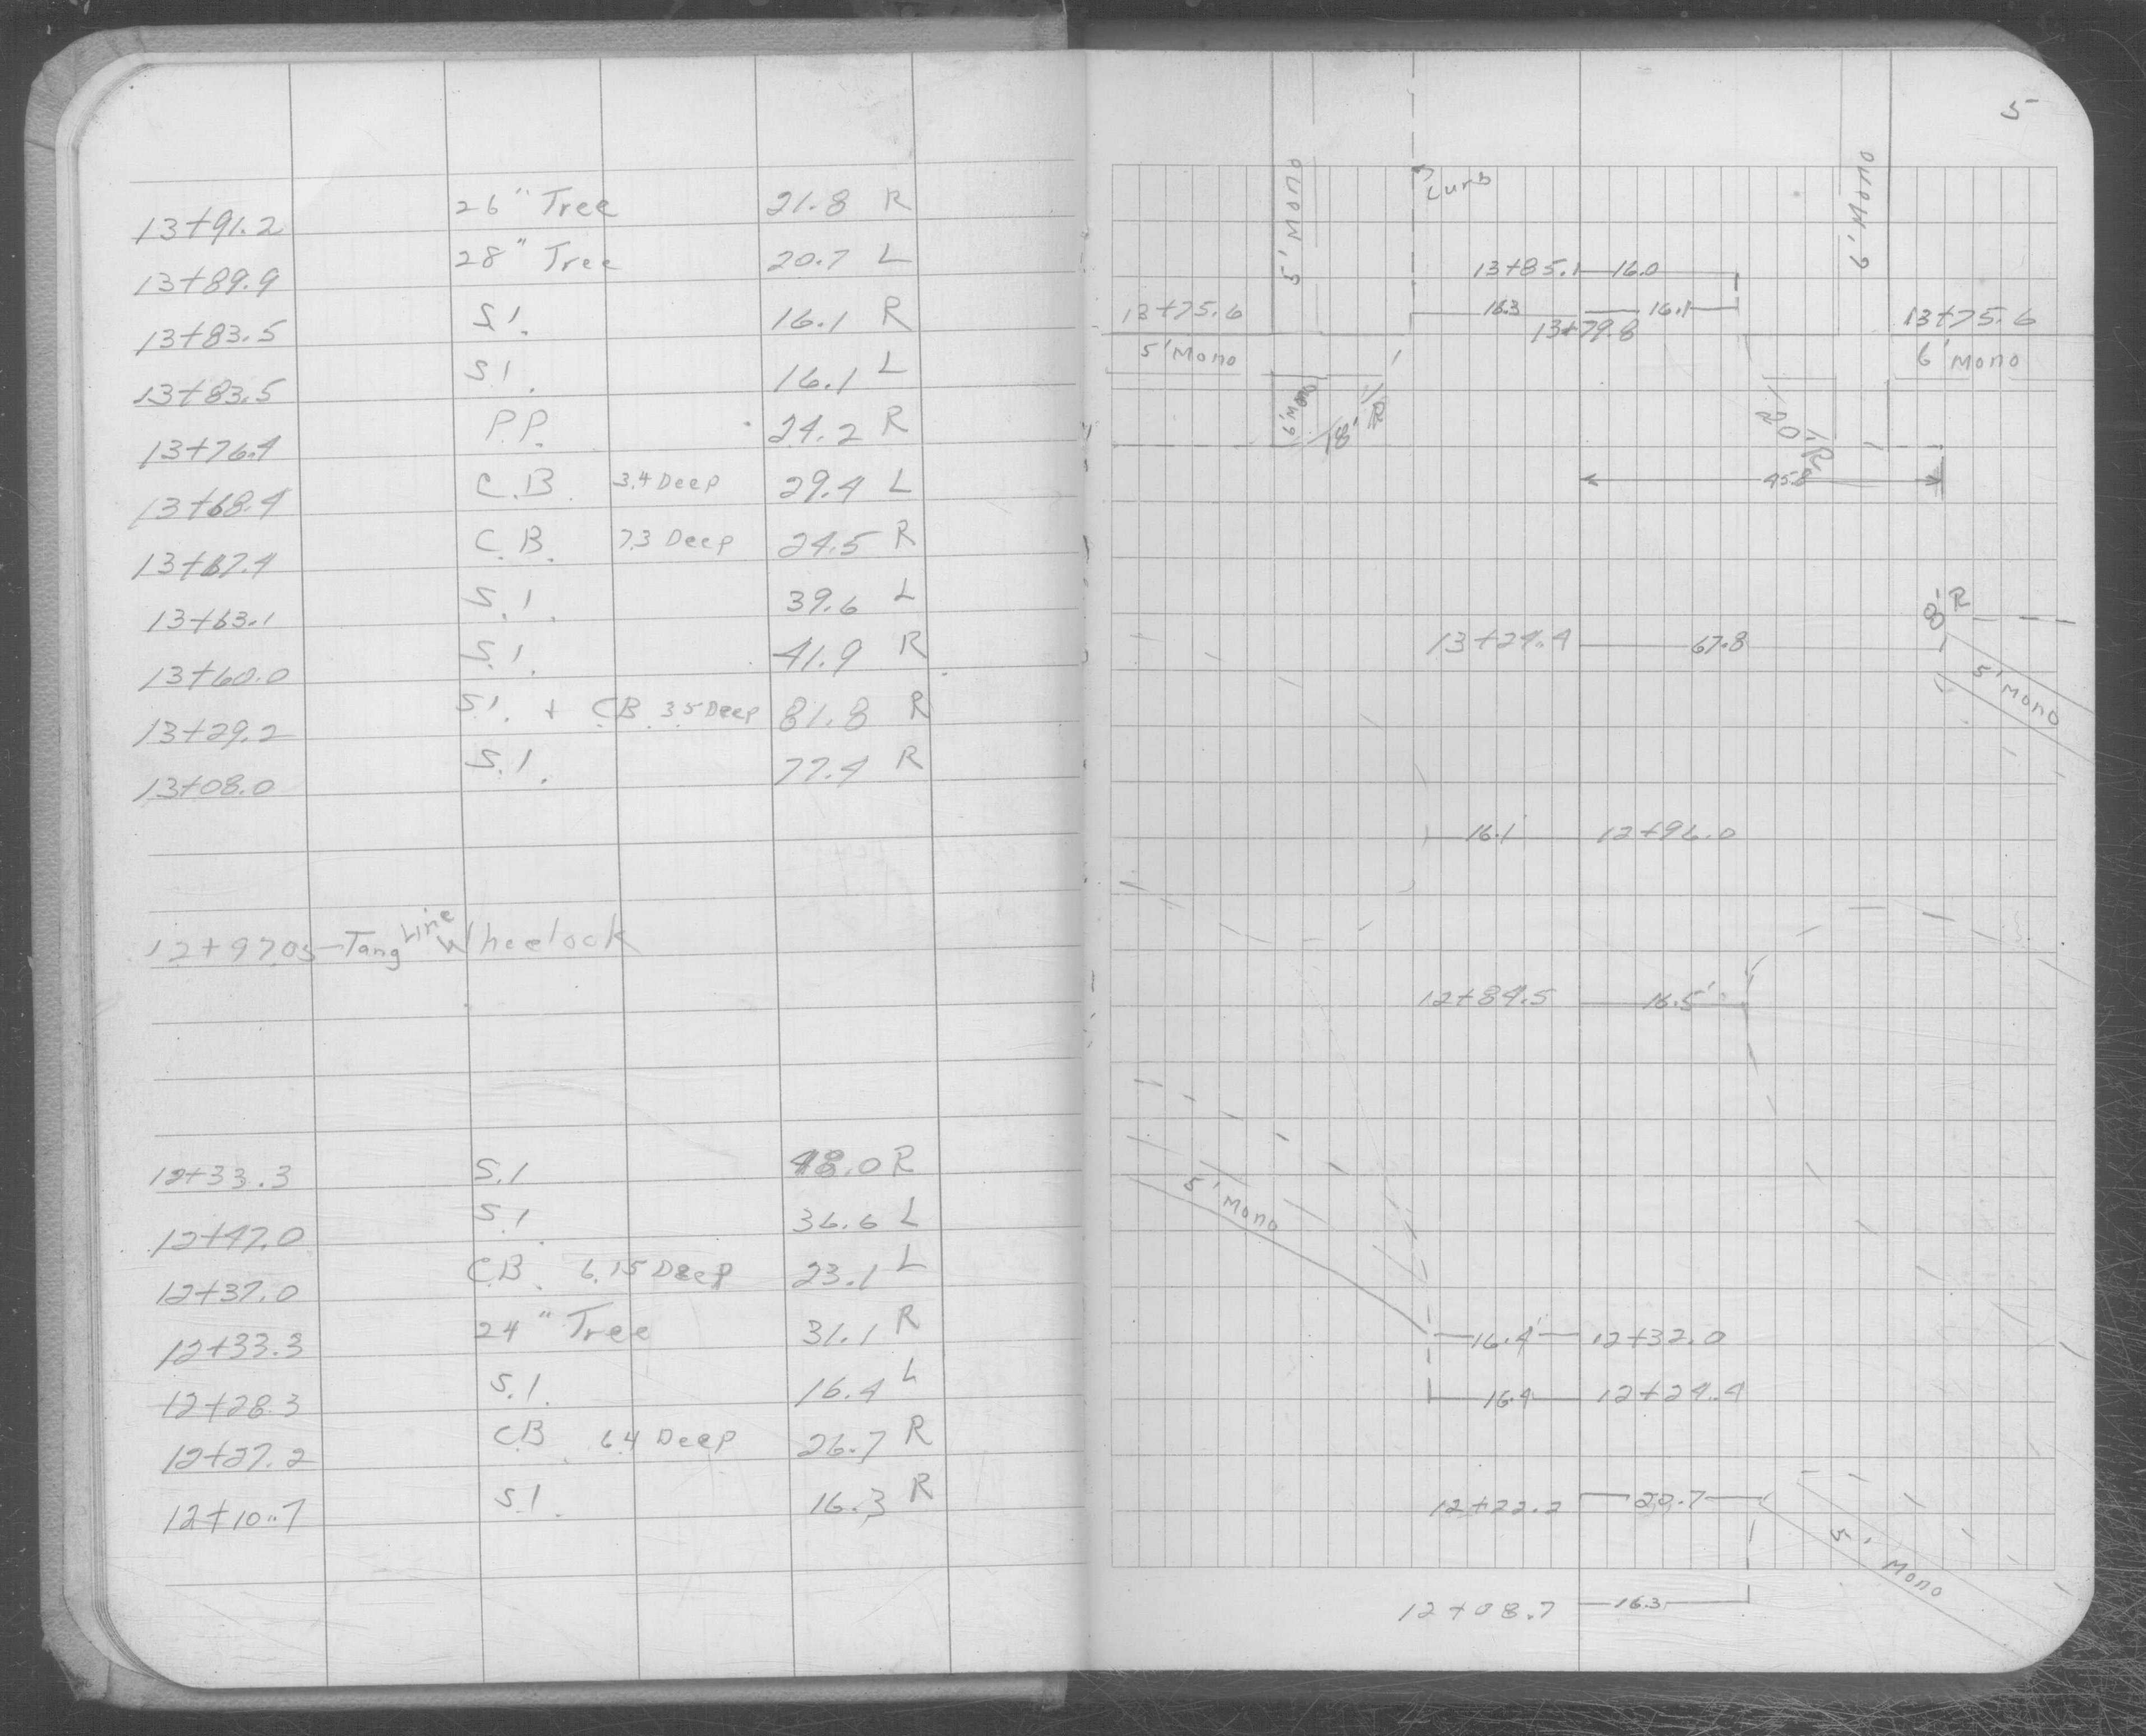 13+91.2 26" Tree 21.8 R
13+89.9 28" Tree 20.7 L
13+83.5 S.I. 16.1 R
13+83.5 S.I. 16.1 L
13+76.4 P.P. 24.2 R
13+68.4 C.B. 3.4 Deep 29.4 L
13+67.4 C.B. 7.3 Deep 24.5 R
13+63.1 S.I. 39.6 L
13+60.0 S.I. 41.9 R
13+29.2 S.I. + C.B. 3.5 Deep 81.8 R
13+08.0 S.I. 77.4 R
12+97.05 - Tang Line Wheelock
12+33.3 S.I 48.0 R
12+47.0 S.I. 36.6 L
12+37.0 C.B. 6.15 Deep 23.1 L
12+33.3 24" Tree 31.1 R
12+28.3 S.I. 16.4 L
12+27.2 C.B. 6.4 Deep 26.7 R
12+10.7 S.I. 16.3 R
5
5' Mono
Curb
6' Mono
13+85.1 16.0
13+75.6
16.3 16.1
13+79.8
13+75.6
5' Mono
6' Mono
6' Mono
18' R
20' R
45.8
8' R
13+24.4 67.8
5' Mono
16.1 12+96.0
12+84.5 16.5'
5' Mono
16.4' 12+32.0
16.4 12+24.4
12+22.2 20.7
5' Mono
12+08.7 16.3